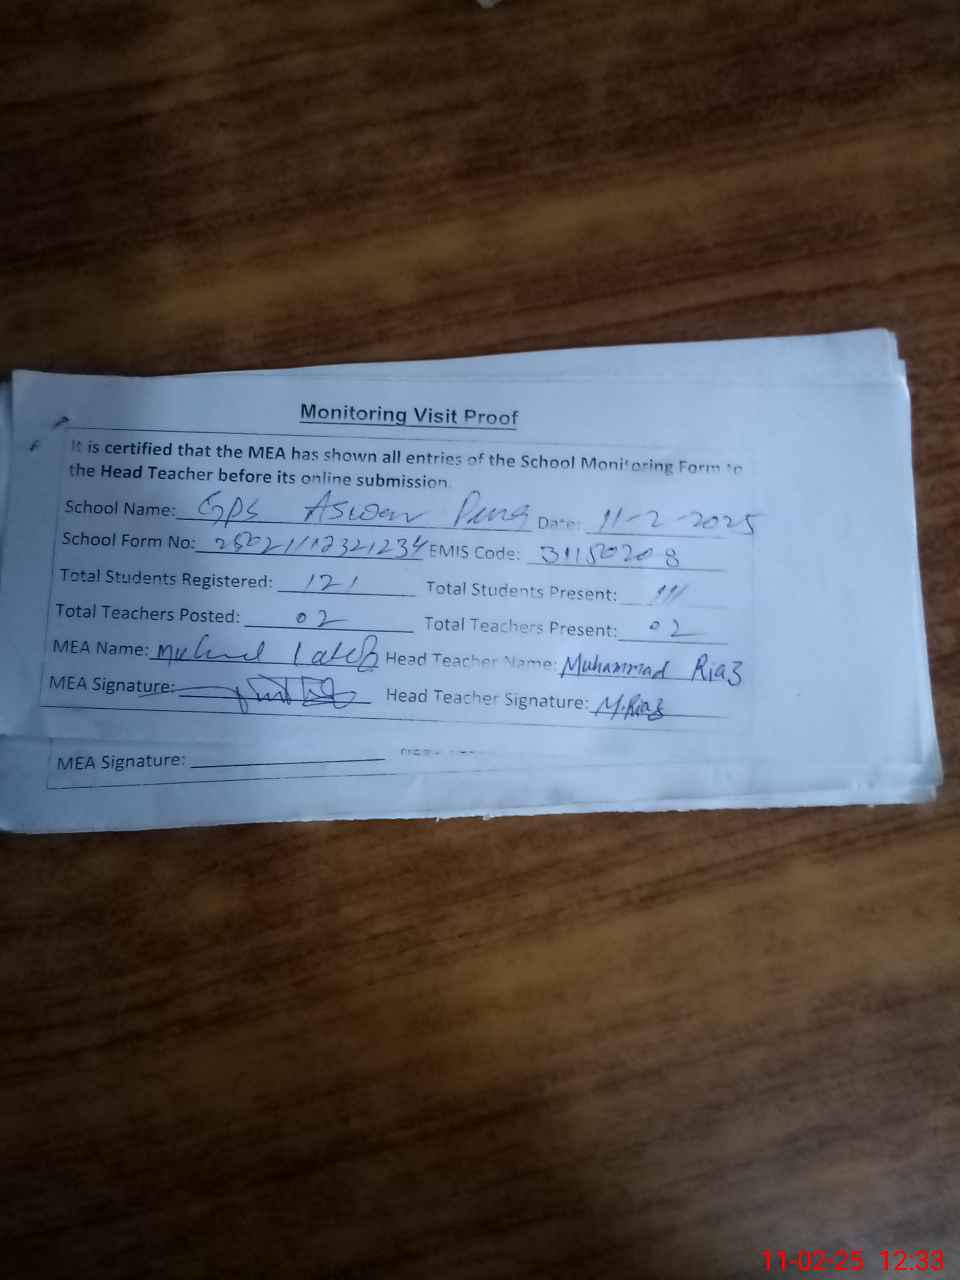 Monitoring Visit Proof
It is certified that the MEA has shown all entries of the School Monitoring Form to
the Head Teacher before its online submission.
School Name: GPS Aswan Date: 11-2-2025
School Form No: EMIS Code: 31150208
Total Students Registered: 121 Total Students Present: 111
Total Teachers Posted: 02 Total Teachers Present: 02
MEA Name: Head Teacher Name: Muhammad Riaz
MEA Signature: Head Teacher Signature: M.Riaz
MEA Signature:
11-02-25 12:33